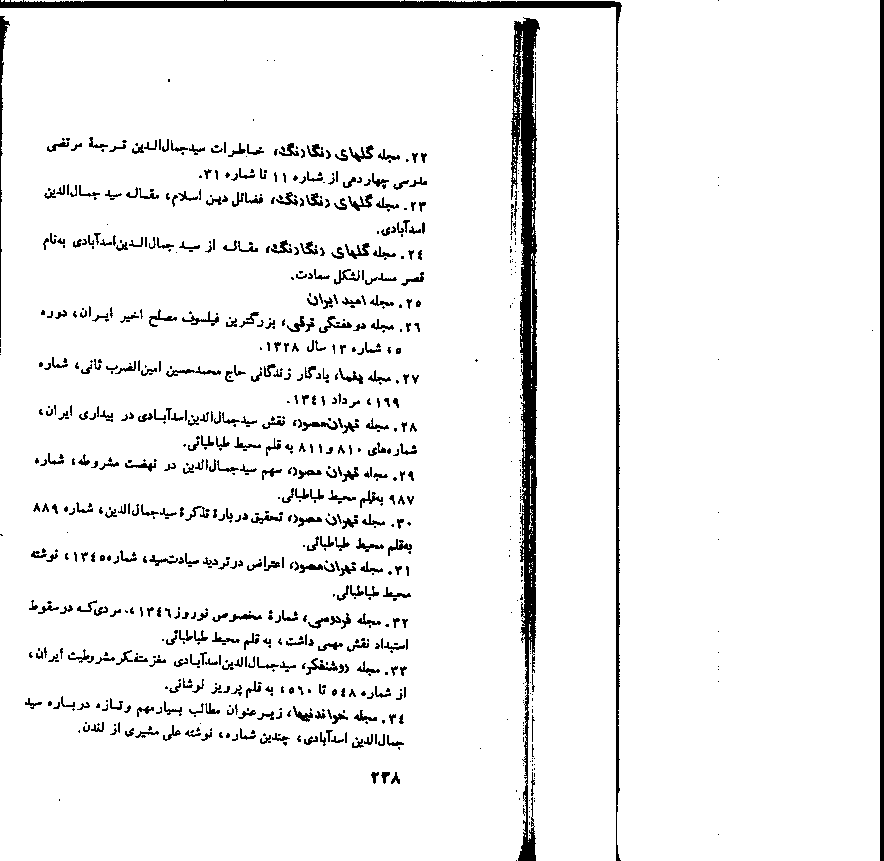 ۲۲. مجله گلهای رنگارنگ، خاطرات سیدجمال‌الدین ترجمهٔ مرتضی
مدرسی چهاردهی از شماره ۱۱ تا شماره ۳۱.
۲۳. مجله گلهای رنگارنگ، فضائل دین اسلام، مقاله سید جمال‌الدین
اسدآبادی.
۲٤. مجله گلهای رنگارنگ، مقاله از سید جمال‌الدین‌اسدآبادی به‌نام
قصر مسدس‌الشکل سعادت.
۲٥. مجله امید ایران
۲٦. مجله دوهفتگی ترقی، بزرگترین فیلسوف مصلح اخیر ایران، دوره
٥، شماره ۱۳ سال ۱۳۲۸.
۲۷. مجله یغما، یادگار زندگانی حاج محمدحسین امین‌الضرب ثانی، شماره
۱۹۹، مرداد ۱۳٤۱.
۲۸. مجله تهران‌مصور، نقش سیدجمال‌الدین‌اسدآبادی در بیداری ایران،
شماره‌های ۸۱۰ و ۸۱۱ به قلم محیط طباطبائی.
۲۹. مجله تهران مصور، سهم سیدجمال‌الدین در نهضت مشروطه، شماره
۹۸۷ به‌قلم محیط طباطبائی.
۳۰. مجله تهران مصور، تحقیق دربارهٔ تذکرهٔ سیدجمال‌الدین، شماره ۸۸۹
به‌قلم محیط طباطبائی.
۳۱. مجله تهران‌مصور، اعتراض در تردید سیادت‌سید، شماره ۱۳٤٥، نوشته
محیط طباطبائی.
۳۲. مجله فردوسی، شمارهٔ مخصوص نوروز ۱۳٤٦، مردی‌که در سقوط
استبداد نقش مهمی داشت، به قلم محیط طباطبائی.
۳۳. مجله روشنفکر، سیدجمال‌الدین‌اسدآبادی مغز متفکر مشروطیت ایران،
از شماره ٥٤۸ تا ٥٦۰، به قلم پرویز نوشانی.
۳٤. مجله خواندنیها، زیر عنوان مطالب بسیار مهم و تازه درباره سید
جمال‌الدین اسدآبادی، چندین شماره، نوشته علی مشیری از لندن.
۲۳۸